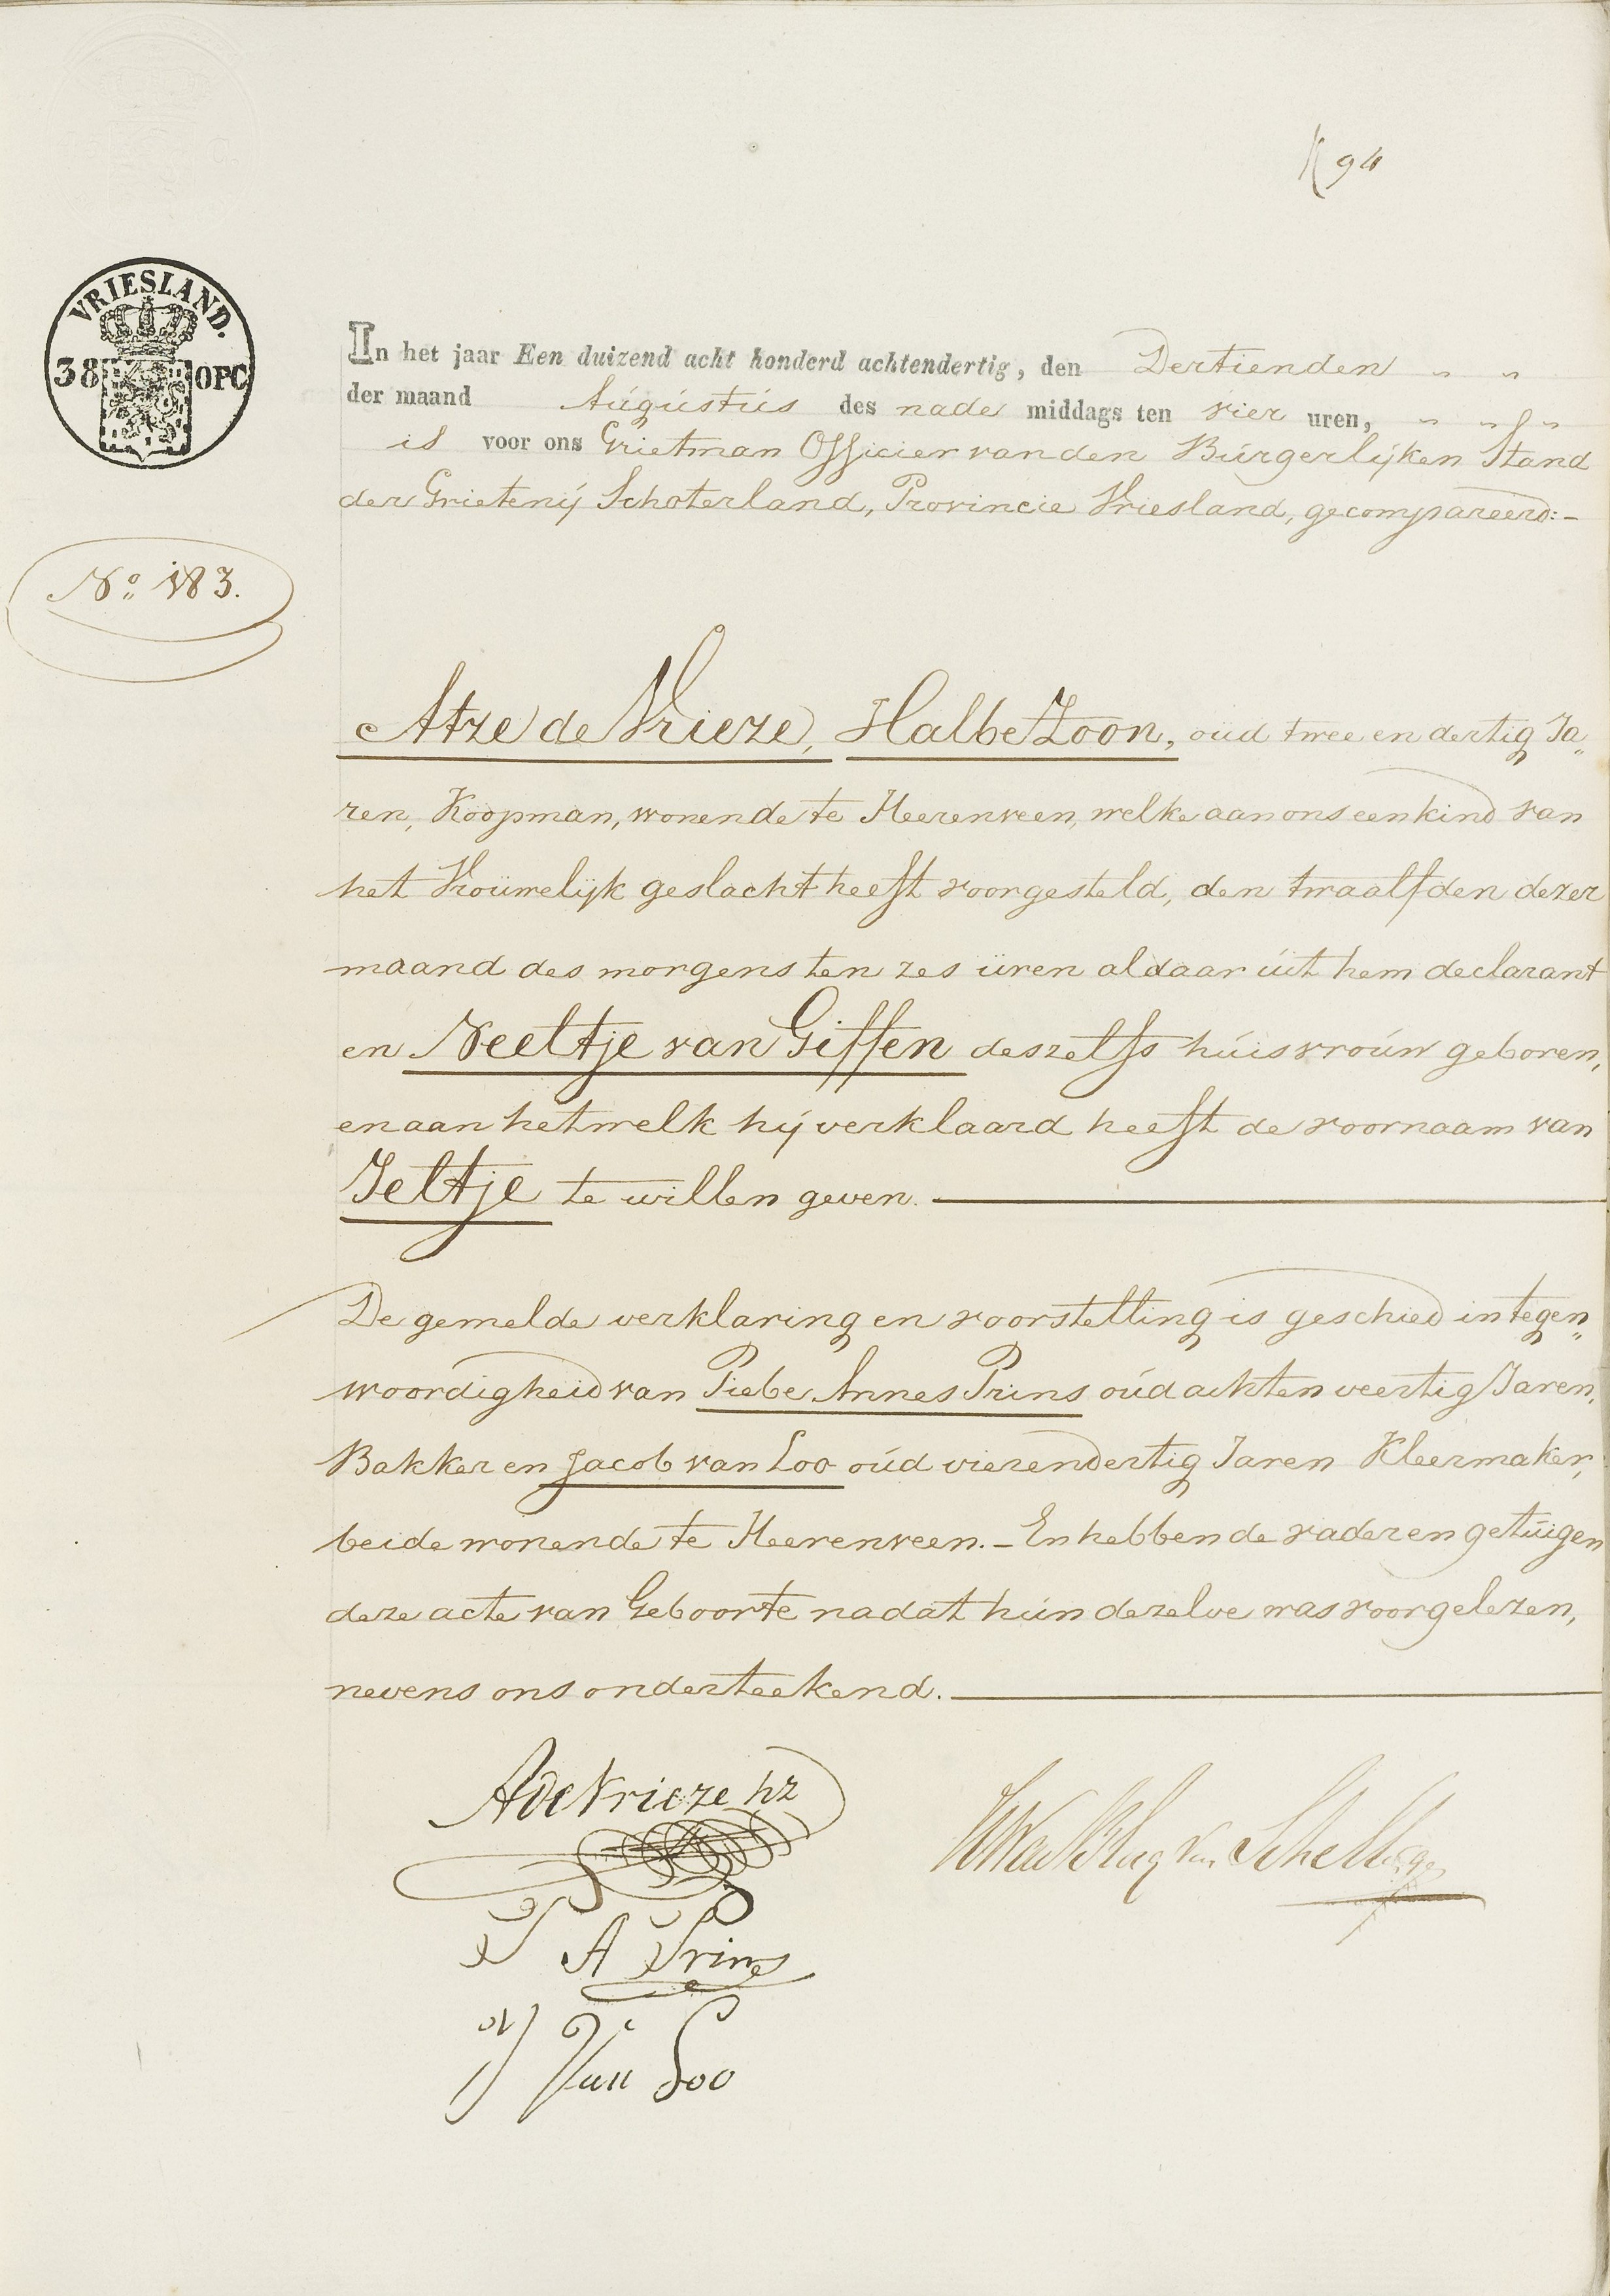 94
VRIESLAND.
38 OPC
In het jaar Een duizend acht honderd achtendertig, den Dertienden " "
der maand Augustus des nade middags ten vier uren, " " "
is voor ons Grietman Officier van den Burgerlijken Stand
der Grietenij Schoterland, Provincie Vriesland, gecompareerd:-
No. 183.
Atze de Vrieze, Halbe Zoon, oud twee en dertig Ja„
ren, Koopman, wonende te Heerenveen, welke aan ons een kind van
het Vrouwelijk geslacht heeft voorgesteld, den twaalfden dezer
maand des morgens ten zes uren aldaar uit hem declarant
en Neeltje van Giffen deszelfs huisvrouw geboren,
en aan hetwelk hij verklaard heeft de voornaam van
Jeltje te willen geven.
De gemelde verklaring en voorstelling is geschied in tegen„
woordigheid van Piebe Annes Prins oud achten veertig Jaren,
Bakker en Jacob van Loo oud vierendertig Jaren Kleermaker,
beide wonende te Heerenveen. - En hebben de vader en getuigen
deze acte van Geboorte nadat hun dezelve was voorgelezen,
nevens ons onderteekend.
A de Vrieze hz
P A Prins
J Van Loo